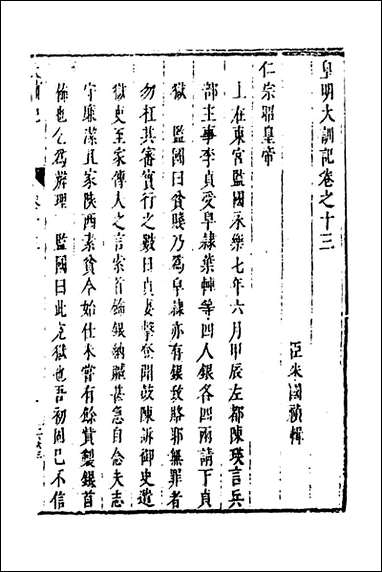 皇明大訓記卷之十三
臣朱國禎輯
仁宗昭皇帝
上在東宮監國永樂七年六月甲辰左都陳瑛言兵
部主事李貞受皁隸葉轉等四人銀各四兩請下貞
獄　監國曰貧賤乃爲皁隸亦有銀致賂耶無罪者
勿枉其審實行之數日貞妻擊登聞鼓陳訴御史遣
獄吏至家傳人之言索首飾銀納贓甚急自念夫志
守廉潔且家陜西素貧今始仕未嘗有餘貲製銀首
飾也乞爲辨理　監國曰此冤獄也吾初固已不信